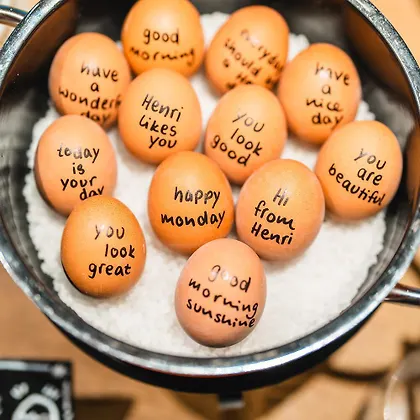 good
morning
everyday
should
have
a
wonderful
day
Henri
likes
you
you
look
good
have
a
nice
day
today
is
your
day
happy
monday
Hi
from
Henri
you
are
beautiful
you
look
great
good
morning
sunshine